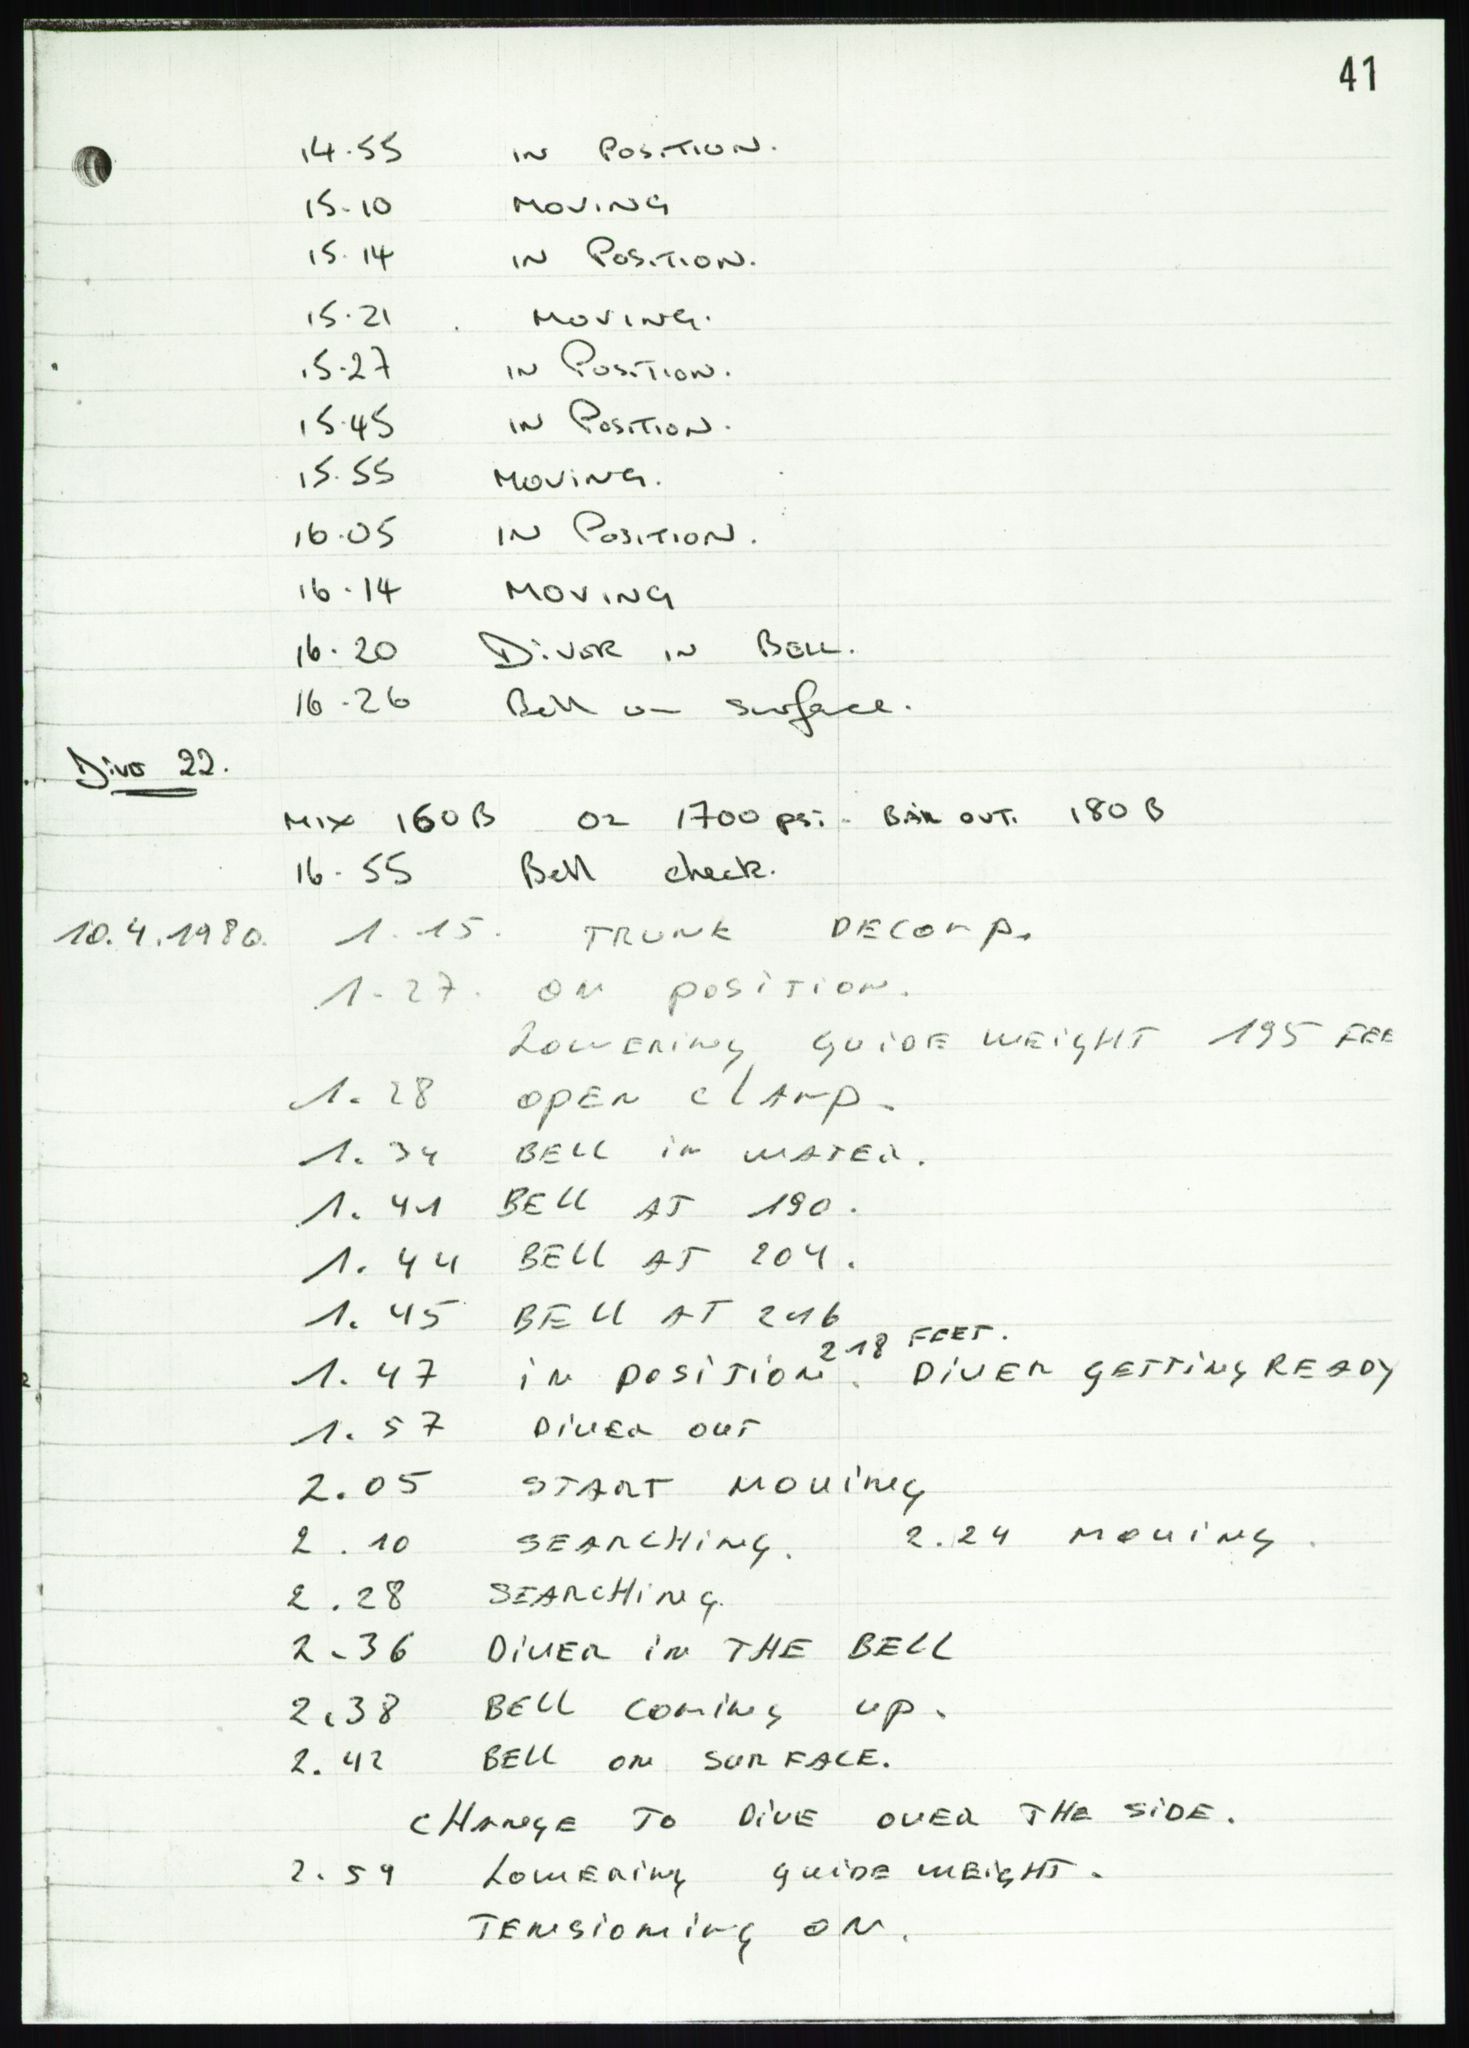 41
14.55 IN POSITION.
15.10 MOVING
15.14 IN POSITION.
15.21 MOVING.
15.27 IN POSITION.
15.45 IN POSITION.
15.55 MOVING.
16.05 IN POSITION.
16.14 MOVING
16.20 DIVER IN BELL.
16.26 Bell on surface.
Dive 22.
MIX 160B O2 1700 psi. BAIL OUT. 180 B
16.55 Bell check.
10.4.1980. 1.15. TRUNK DECOMP.
1.27. ON POSITION.
LOWERING GUIDE WEIGHT 195 FEE
1.28 OPEN CLAMP.
1.34 BELL IN WATER.
1.41 BELL AT 190.
1.44 BELL AT 204.
1.45 BELL AT 216
218 FEET.
1.47 IN POSITION. DIVER GETTING READY
1.57 DIVER OUT
2.05 START MOVING
2.10 SEARCHING. 2.24 MOVING.
2.28 SEARCHING.
2.36 DIVER IN THE BELL
2.38 BELL COMING UP.
2.42 BELL ON SURFACE.
CHANGE TO DIVE OVER THE SIDE.
2.59 LOWERING GUIDE WEIGHT.
TENSIONING ON.